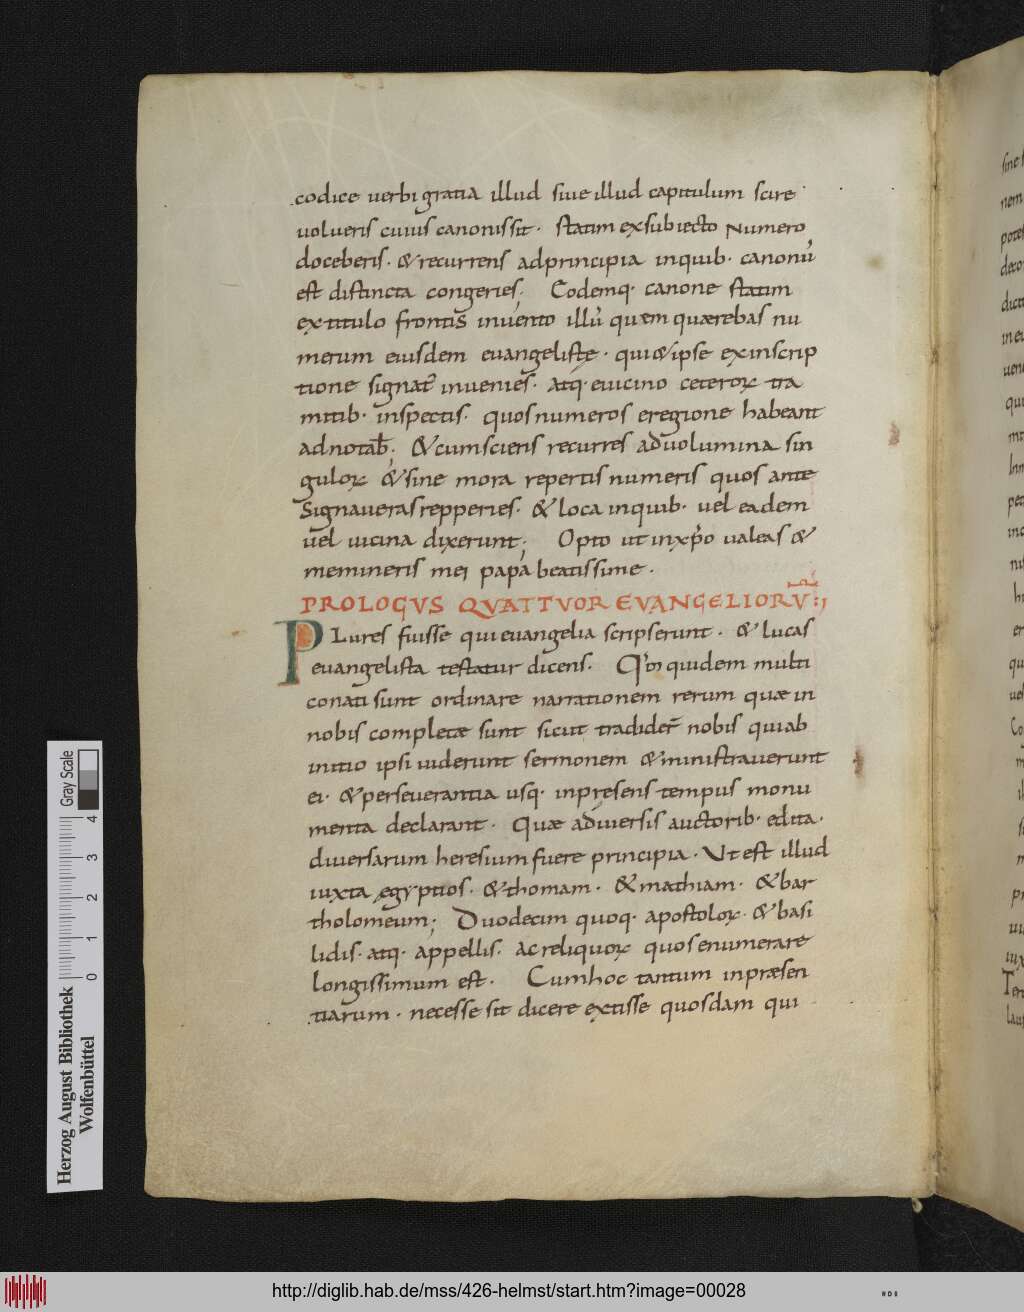 codice uerbi gratia illud siue illud capitulum scire
uolueris cuius canonis sit · statim ex subiecto Numero
doceberis · & recurrens ad principia in quib· canonū
est distincta congeries; Eodemq· canone statim
ex titulo frontis inuento illū quem quærebas nu
merum eiusdem euangelistę · qui & ipse ex inscrip
tione signat᷒ inuenies · atq· e uicino ceterorꝝ tra
mitib· inspectis · quos numeros e regione habeant
adnotab̄; & cum scieris recurres ad uolumina sin
gulorꝝ & sine mora repertis numeris quos ante
signaueras repperies · & loca in quib· uel eadem
uel uicina dixerunt; Opto ut in xp̄o ualeas &
memineris mei papa beatissime ·
PROLOGVS QVATTVOR EVANGELIORV̄:
PLures fuisse qui euangelia scripserunt · & lucas
euangelista testatur dicens · Qm̄ quidem multi
conati sunt ordinare narrationem rerum quæ in
nobis completæ sunt sicut tradider̄ nobis qui ab
initio ipsi uiderunt sermonem & ministrauerunt
ei · & perseuerantia usq· in presens tempus monu
menta declarant · Quæ a diuersis auctorib· edita ·
diuersarum heresium fuere principia · Ut est illud
iuxta ęgyptios · & thomam · & mathiam · & bar
tholomeum; Duodecim quoq· apostolorꝝ · & basi
lidis · atq· appellis · ac reliquorꝝ quos enumerare
longissimum est · Cum hoc tantum in præsen
tiarum · necesse sit dicere extisse quosdam qui
Gray Scale
0 1 2 3 4
Herzog August Bibliothek
Wolfenbüttel
http://diglib.hab.de/mss/426-helmst/start.htm?image=00028